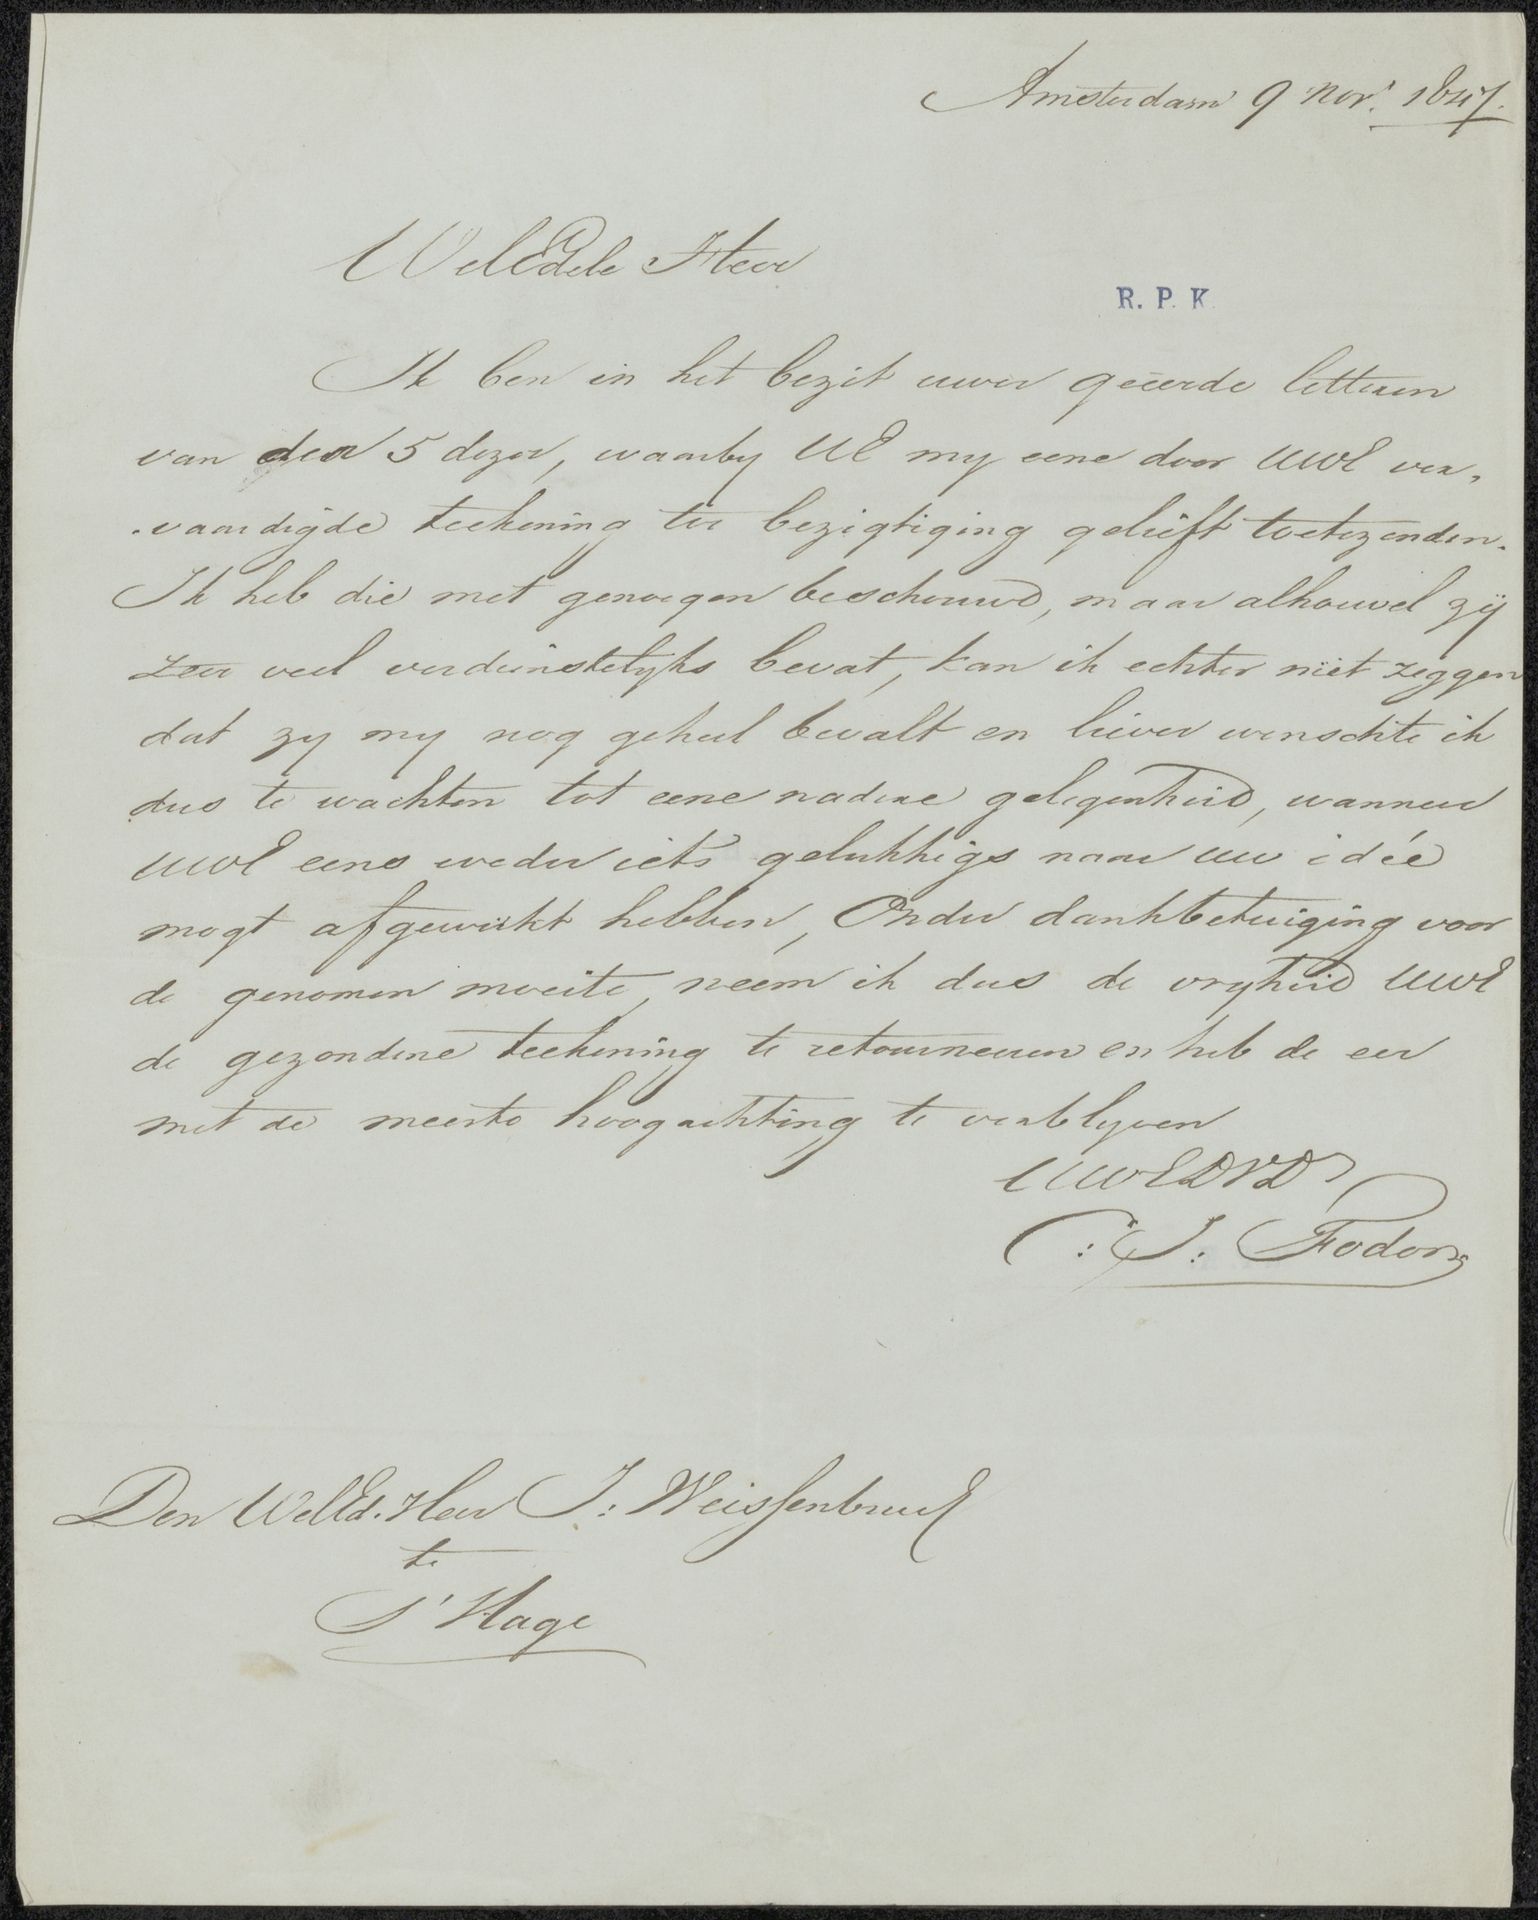 Amsterdam 9 Nov. 1847.
WelEdele Heer
R. P. K.
Ik ben in het bezit uwer geëerde letteren
van den 5 dezer, waarby UE my eene door UWE ver-
-vaardigde teekening ter bezigtiging gelieft toetezenden.
Ik heb die met genoegen beschouwd, maar alhouwel zij
zeer veel verdienstelyks bevat, kan ik echter niet zeggen
dat zy my nog geheel bevalt en liever wenschte ik
dus te wachten tot eene nadere gelegenheid, wanneer
UWE eens weder iets gelukkigs naar uw idée
mogt afgewerkt hebben, Onder dankbetuiging voor
de genomen moeite, neem ik dus de vryheid UWE
de gezondene teekening te retourneeren en heb de eer
met de meeste hoogachting te verblyven
UWEDVD
C: J: Fodor
Den WelEd. Heer J: Weissenbruch
te
S'Hage